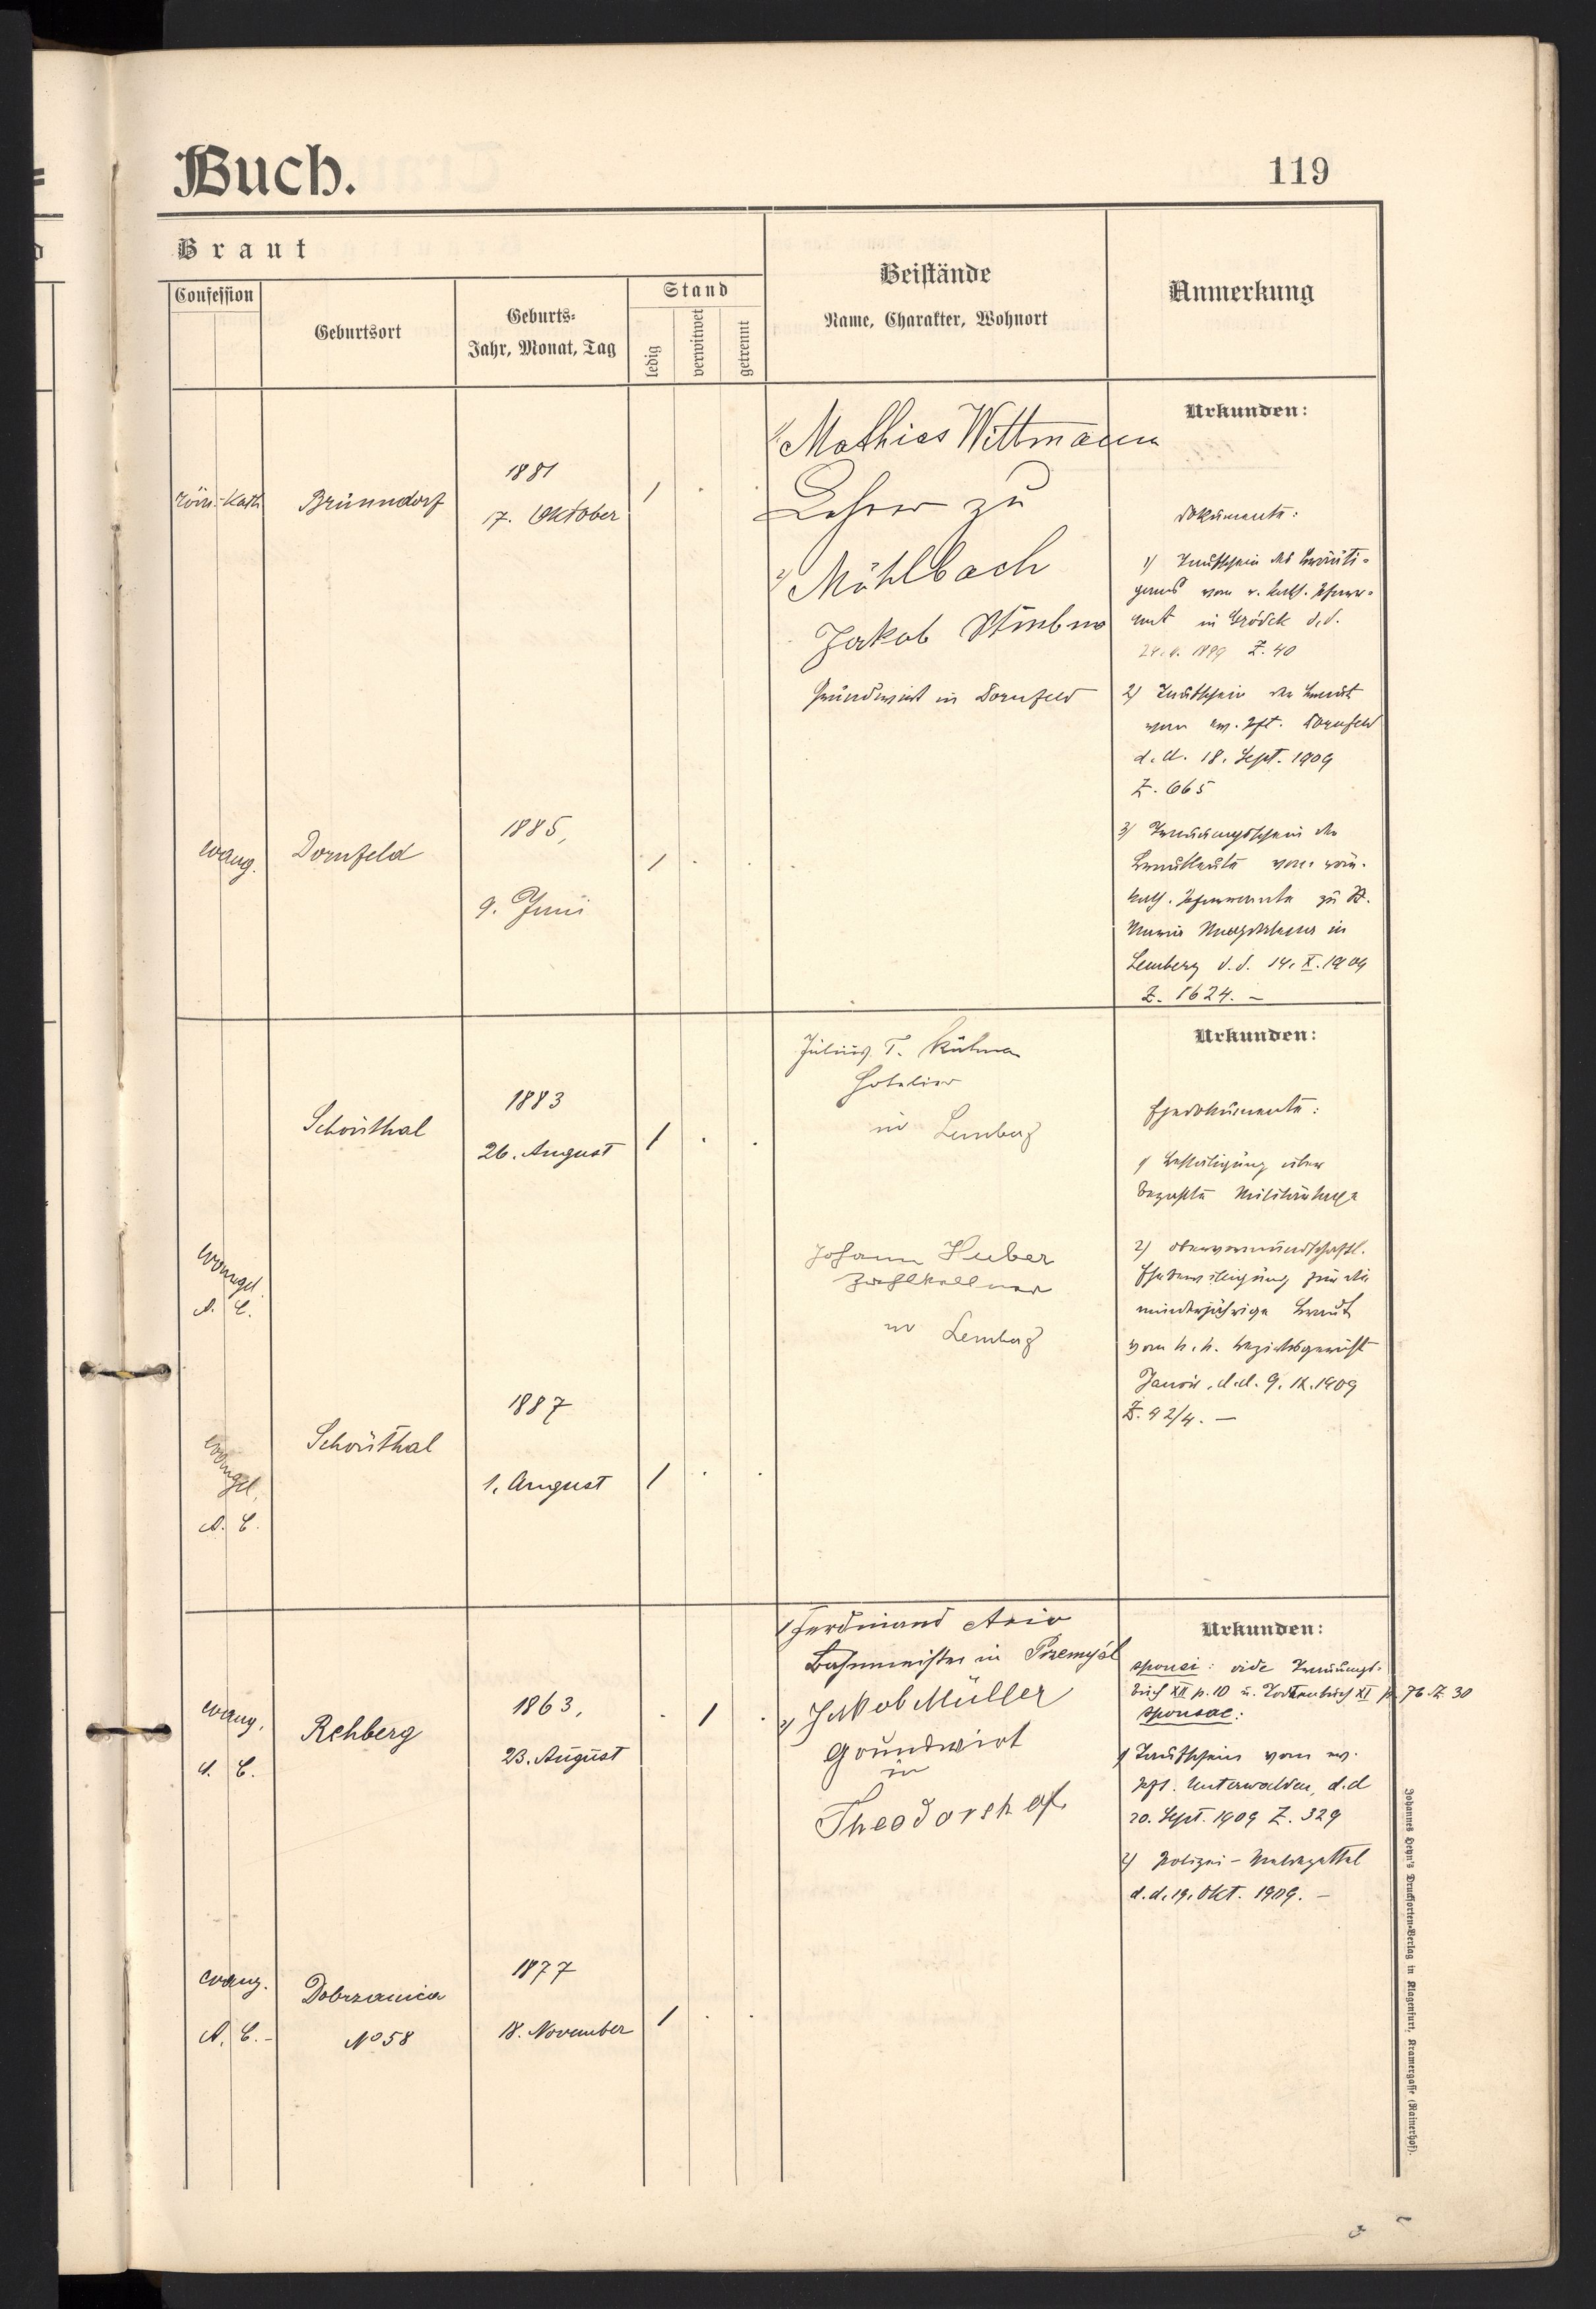 Buch.
119
Braut
Confession
Geburtsort
Geburts-
Jahr, Monat, Tag
Stand
ledig
verwitwet
getrennt
Beistände
Name, Charakter, Wohnort
Anmerkung
röm.-kath.
Brünndorf
1881
17. Oktober
1
1) Mathias Wittmann
Lehrer zu
2) Mühlbach
Jakob
Grundwirt in Dornfeld
evang.
Dornfeld
1885,
9. Juni
1
Urkunden:
Dokumente:
1) Taufschein des Bräuti-
gams vom r. kath. Pfarr-
amt in Gródek d. d.
1899 Z. 40
2) Taufschein der Braut
vom ev. Pft. Dornfeld
d. d. 18. Sept. 1909
Z. 665
3) Trauungsschein der
Brautleute vom röm.
kath. Pfarramte zu St.
Maria Magdalena in
Lemberg d. d. 14. X. 1909
Z. 1624. –
Schönthal
1883
26. August
1
evangel.
A. C.
Julius T.
Hotelier
in Lemberg
Johann Huber
Zahlkellner
in Lemberg
evangel.
A. C.
Schönthal
1887
1. August
1
Urkunden:
Ehedokumente:
1) Bestätigung über
bezahlte Militärtaxe
2) obervormundschaftl.
Ehebewilligung für die
minderjährige Braut
vom k. k. Bezirksgericht
Janów, d. d. 9. IX. 1909
Z. 92/4. –
evang.
A. C.
Rehberg
1863,
23. August
1
1) Ferdinand
Bahnmeister in Przemyśl
2) Jakob Müller
Grundwirt
in
Theodorshof
evang.
A. C. –
Dobrzanica
No 58
1877
18. November
1
Urkunden:
sponsi: vide Trauungs-
buch XII p. 10 u. Totenbuch XI p. 76 Z. 30
sponsae:
1) Taufschein vom ev.
Pft. Unterwalden, d. d
20. Sept. 1909 Z. 329
2) Polizei-Meldzettel
d. d. 19. Okt. 1909. –
Johannes Heyn's Drucksorten-Verlag in Klagenfurt, Kramergasse (Rainerhof).